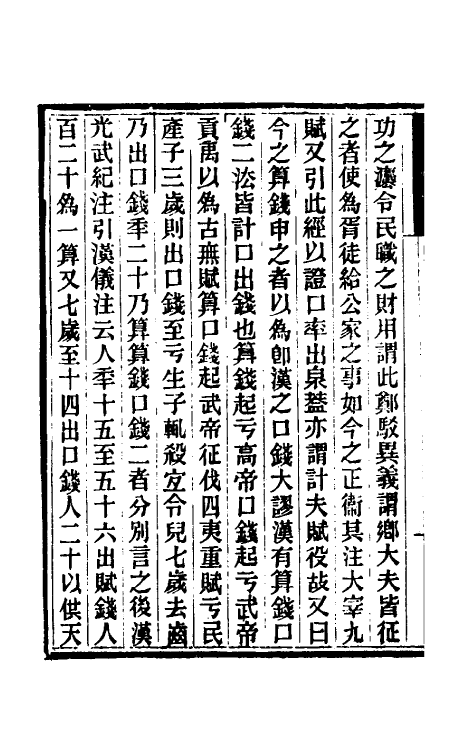 功之灋令民職之財用謂此鄭駁異義謂鄉大夫皆征
之者使爲胥徒給公家之事如今之正衞其注大宰九
賦又引此經以證口率出泉蓋亦謂計夫賦役故又曰
今之算錢申之者以爲卽漢之口錢大謬漢有算錢口
錢二法皆計口出錢也算錢起亏高帝口錢起亏武帝
貢禹以爲古無賦算口錢起武帝征伐四夷重賦亏民
產子三歲則出口錢至亏生子輒殺宐令兒七歲去齒
乃出口錢秊二十乃算算錢口錢二者分別言之後漢
光武紀注引漢儀注云人秊十五至五十六出賦錢人
百二十爲一算又七歲至十四出口錢人二十以供天